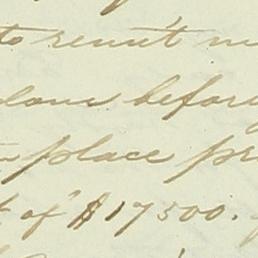 to remit
done before
place pr
of $17500.